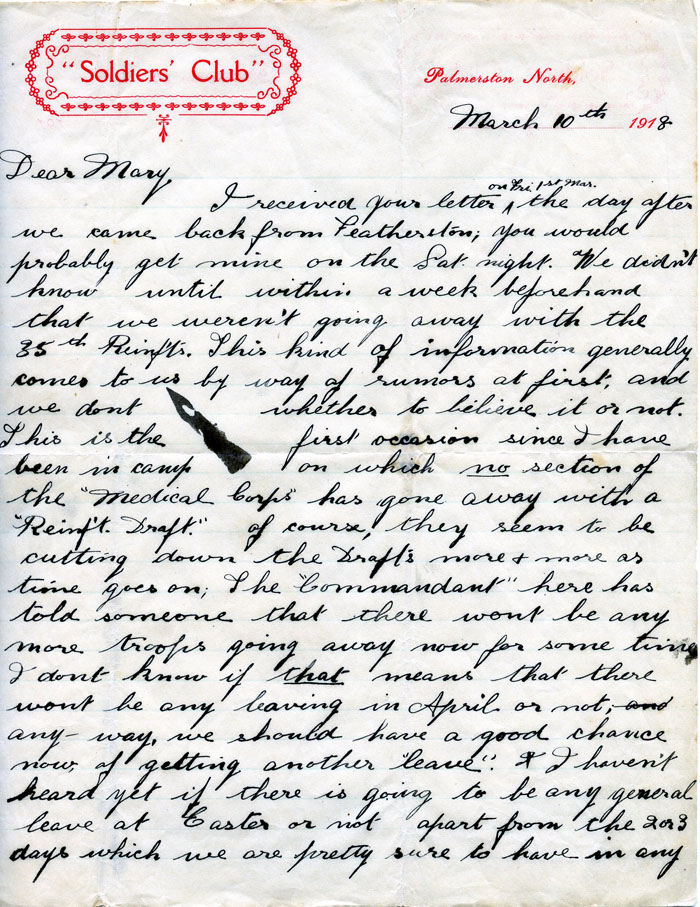 "Soldiers' Club"
Palmerston North,
March 10th 1918
Dear Mary,
on Fri 1st Mar.
I received your letter ^ the day after
we came back from Featherston; you would
probably get mine on the Sat. night. We didn't
know until within a week beforehand
that we weren't going away with the
35th Reinfts. This kind of information generally
comes to us by way of rumors at first, and
we dont whether to believe it or not.
This is the first occasion since I have
been in camp on which no section of
the "Medical Corps" has gone away with a
"Reinft. Draft." of course, they seem to be
cutting down the Drafts more & more as
time goes on; The "Commandant" here has
told someone that there wont be any
more troops going away now for some time
I dont know if that means that there
wont be any leaving in April or not, and
any-way, we should have a good chance
now, of getting another "leave". & I haven't
heard yet if there is going to be any general
leave at Easter or not apart from the 2 or 3
days which we are pretty sure to have in any